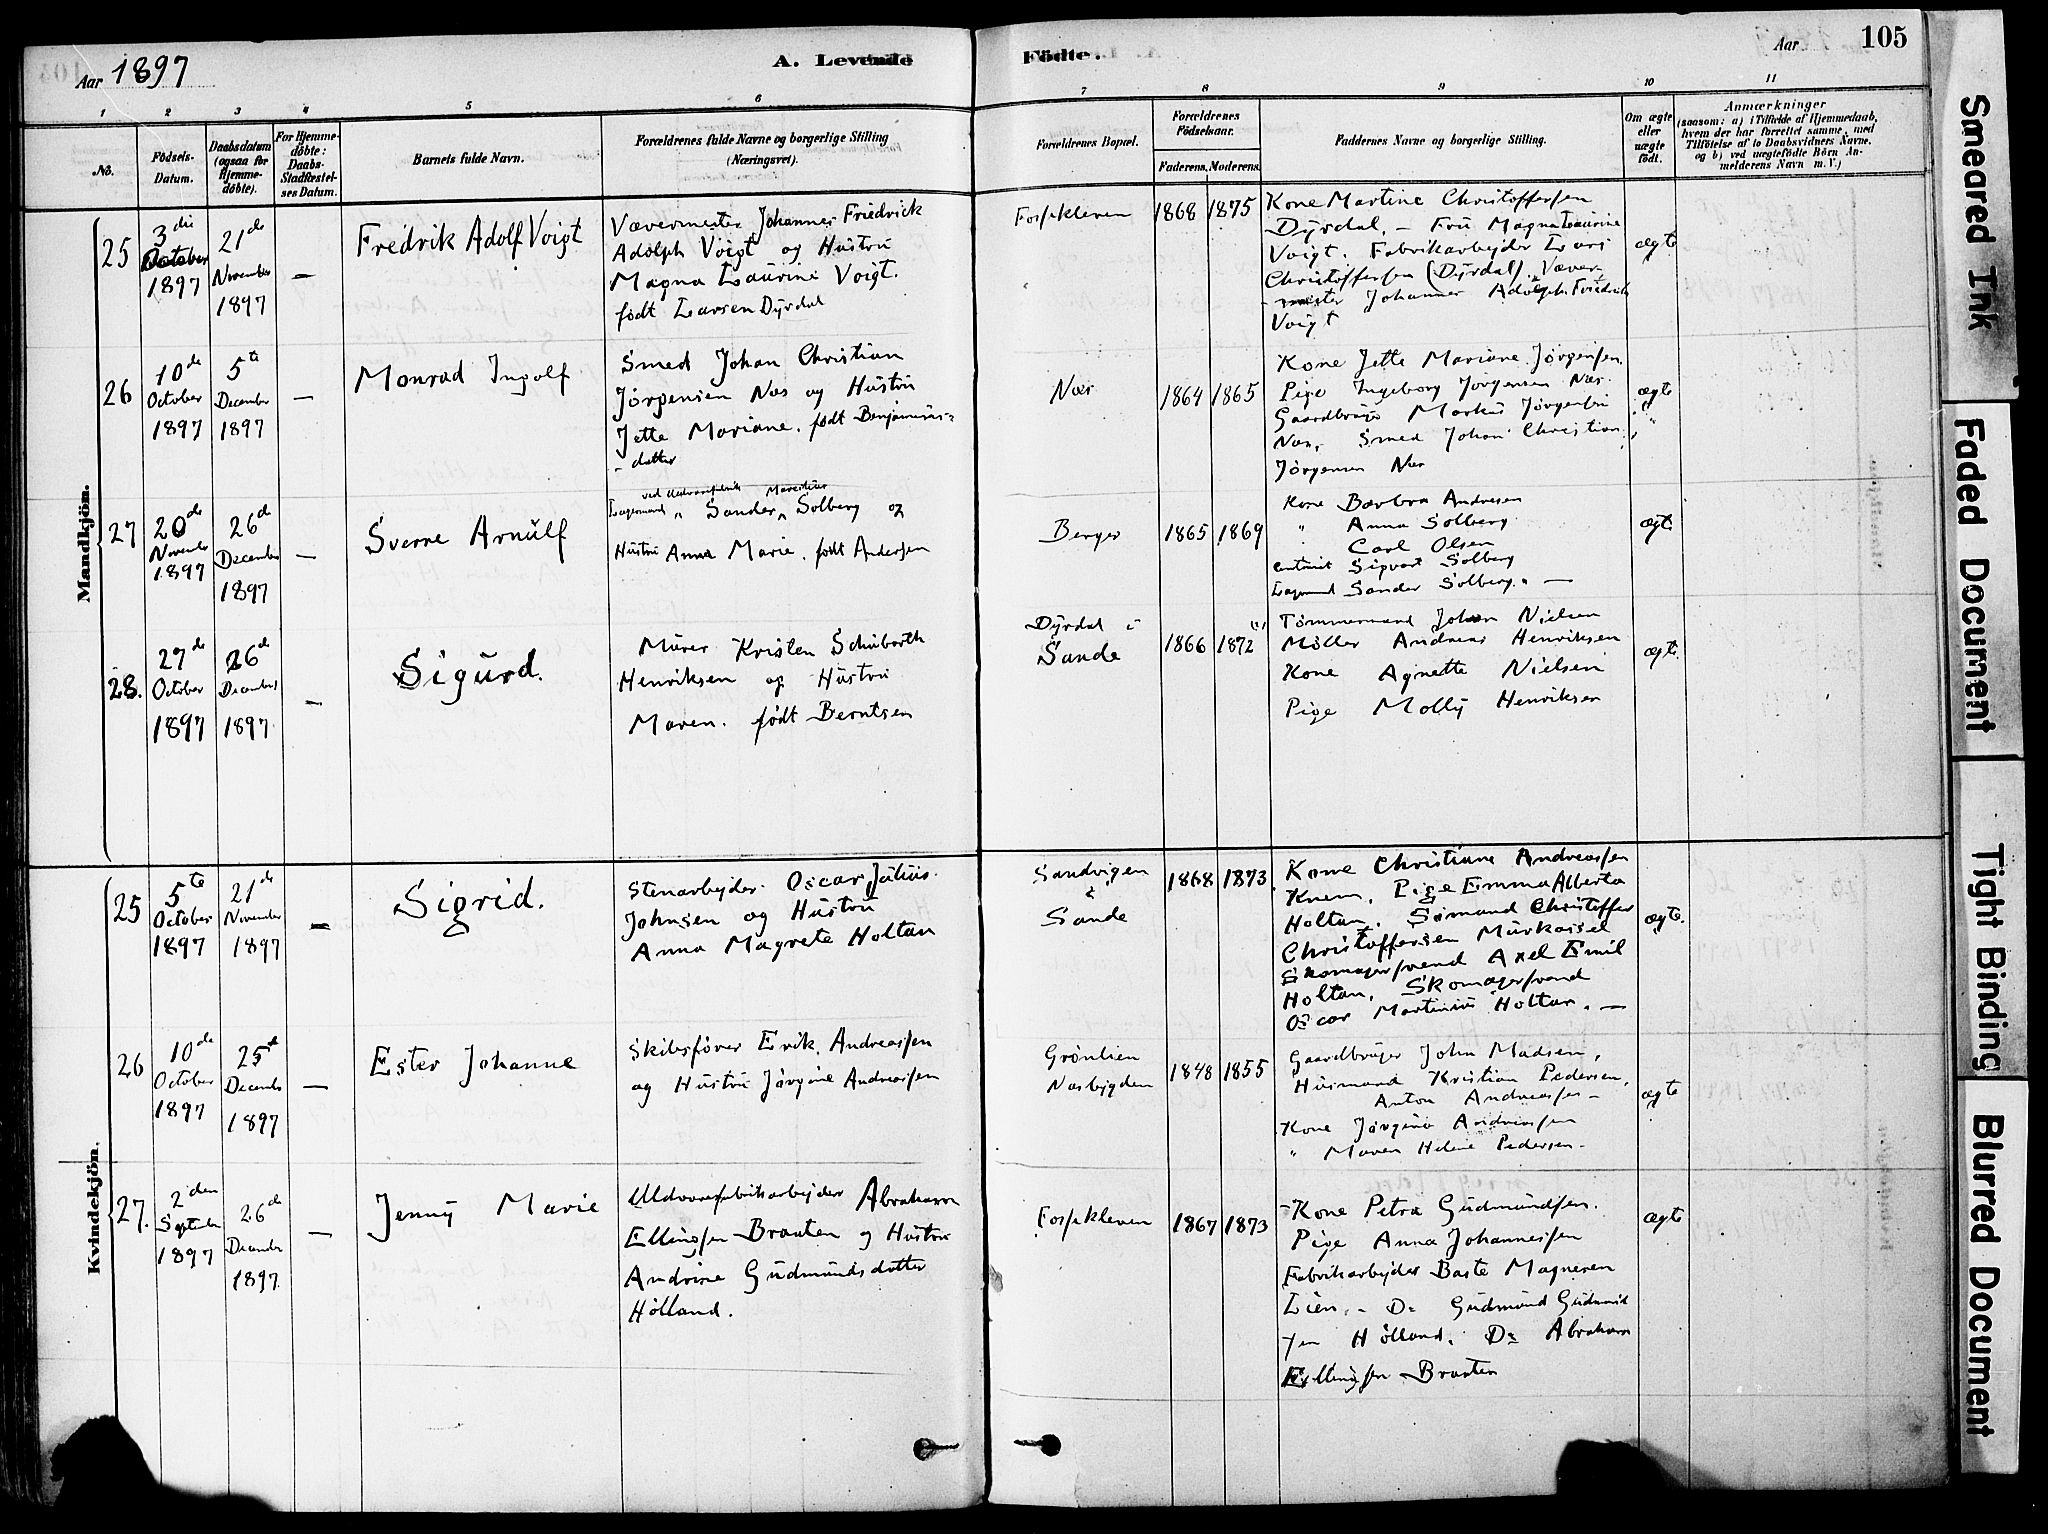 Aar 1897
A. Levende
Fødte.
Aar
105
1
2
3
4
5
6
7
8
9
10
11
No.
Fødsels-
Datum.
Daabsdatum
(ogsaa for
Hjemme-
døbte).
For Hjemme-
døbte:
Daabs-
Stadfæstel-
ses Datum.
Barnets fulde Navn.
Forældrenes fulde Navne og borgerlige Stilling
(Næringsvei).
Forældrenes Bopæl.
Forældrenes
Fødselsaar.
Faderens. Moderens.
Faddernes Navne og borgerlige Stilling.
Om ægte
eller
uægte
født.
Anmærkninger
(saasom: a) i Tilfælde af Hjemmedaab,
hvem der har forrettet samme, med
Tilføielse af to Daabsvidners Navne,
og b) ved uægtefødte Børn An-
melderens Navn m. V.)
Mandkjøn.
25
3die
October
1897
21de
November
1897
—
Fredrik Adolf Voigt
Vævermester Johannes Friedrick
Adolph Voigt og Hustru
Magna Laurine Voigt.
født Larsen Dyrdal
Fossekleven
1868
1875
Kone Martine Christoffersen
Dyrdal, – Fru Magna Laurine
Voigt. Fabrikarbejder Lars
Christoffersen (Dyrdal). Væver-
mester Johannes Adolph Friedrik
Voigt
ægte
26
10de
October
1897
5te
December
1897
—
Monrad Ingolf
Smed Johan Christian
Jørgensen Næs og Hustru
Jette Mariane. født Benjamins-
- datter
Nær
1864
1865
Kone Jette Mariane Jørgensen.
Pige Ingeborg Jørgensen Nær.
Gaardbruger Markus Jørgensen
Nær, Smed Johan Christian
Jørgensen Nær
ægte
27
20de
November
1897
26de
December
1897
—
Sverre Arnulf
ved Uldvarefabrik
Lagermand Sander Solberg og
Hustru Anna Marie. født Andersen
Berger
1865
1869
Kone Barbra Andresen
" Anna Solberg
" Carl Olsen
Sigvart Solberg
Lagermand Sander Solberg. —
ægte
28.
27de
October
1897
26de
December
1897
—
Sigurd.
Murer Kristen Schubarth
Henriksen og Hustru
Maren. født Berntsen
Dyrdal i
Sande
1866
1872
Tømmermand Johan Nielsen
Møller Andreas Henriksen
Kone Agnette Nielsen
Pige Molly Henriksen
ægte.
Kvindekjøn.
25
5te
October
1897
21de
November
1897
—
Sigrid.
Stenarbejder Oscar Julius
Johnsen og Hustru
Anna Magrete Holtan
Sandvigen
i
Sande
1868
1873
Kone Christiane Andreassen
Knem, Pige Emma Alberta
Holtan, Sømand Christoffer
Christoffersen Murkassel
Skomagersvend Axel Emil
Holtan, Skomagersvend
Oscar Martinius Holtan. —
ægte.
26
10de
October
1897
25de
December
1897
—
Ester Johanne
Skibsfører Erik Andreassen
og Hustru Jørgine Andreassen
Grønlien
Næsbygden
1848
1855
Gaardbruger John Madsen,
Husmand Kristian Pedersen,
Anton Andreassen –
Kone Jørgine Andreassen
" Maren Helene Pedersen –
ægte
27.
2den
September
1897
26de
December
1897
—
Jenny Marie
Uldvarefabrikarbejder Abraham
Ellingsen Braaten og Hustru
Andrine Gudmundsdatter
Hølland.
Fossekleven
1867
1873
Kone Petra Gudmundsen.
Pige Anna Johannessen
Fabrikarbejder Baste Magnesen
Lien, – Do Gudmund Gudmund
sen Hølland. Do Abraham
Ellingsen Braaten
ægte
Smeared Ink
Faded Document
Tight Binding
Blurred Document